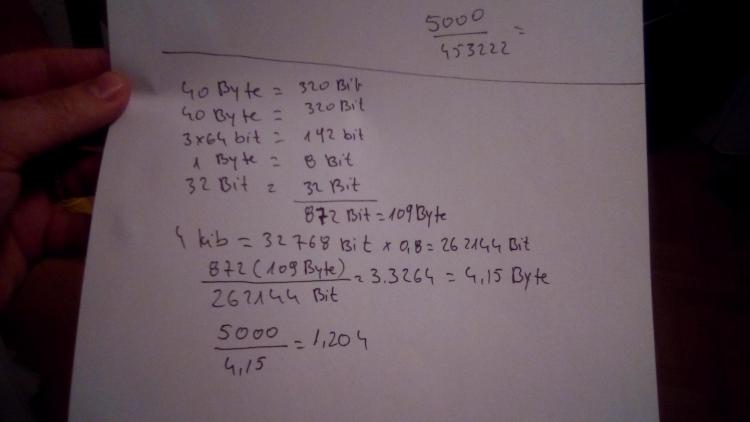 5000
453222 =
40 Byte = 320 Bit
40 Byte = 320 Bit
3x64 bit = 192 bit
1 Byte = 8 Bit
32 Bit = 32 Bit
872 Bit = 109 Byte
4 kib = 32768 Bit x 0,8 = 262144 Bit
872 (109 Byte)
262144 Bit
= 3.3264 = 4,15 Byte
5000
4,15
= 1,204